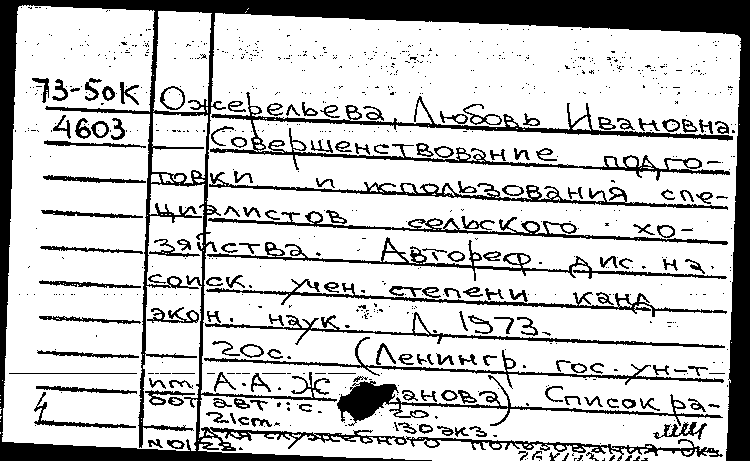 73-50К Ожерельева, Любовь Ивановна.
4603 Совершенствование подго-
товки и использования спе-
циалистов сельского хо-
зяйства. Автореф. дис. на
соиск. учен. степени канд
экон. наук. Л., 1973.
20с. (Ленингр. гос. ун-т
им. А.А. Ж данова). Список ра-
бот авт.: с. 20.
4 21 ст. 130 экз.
Для служебного пользования. Экз.